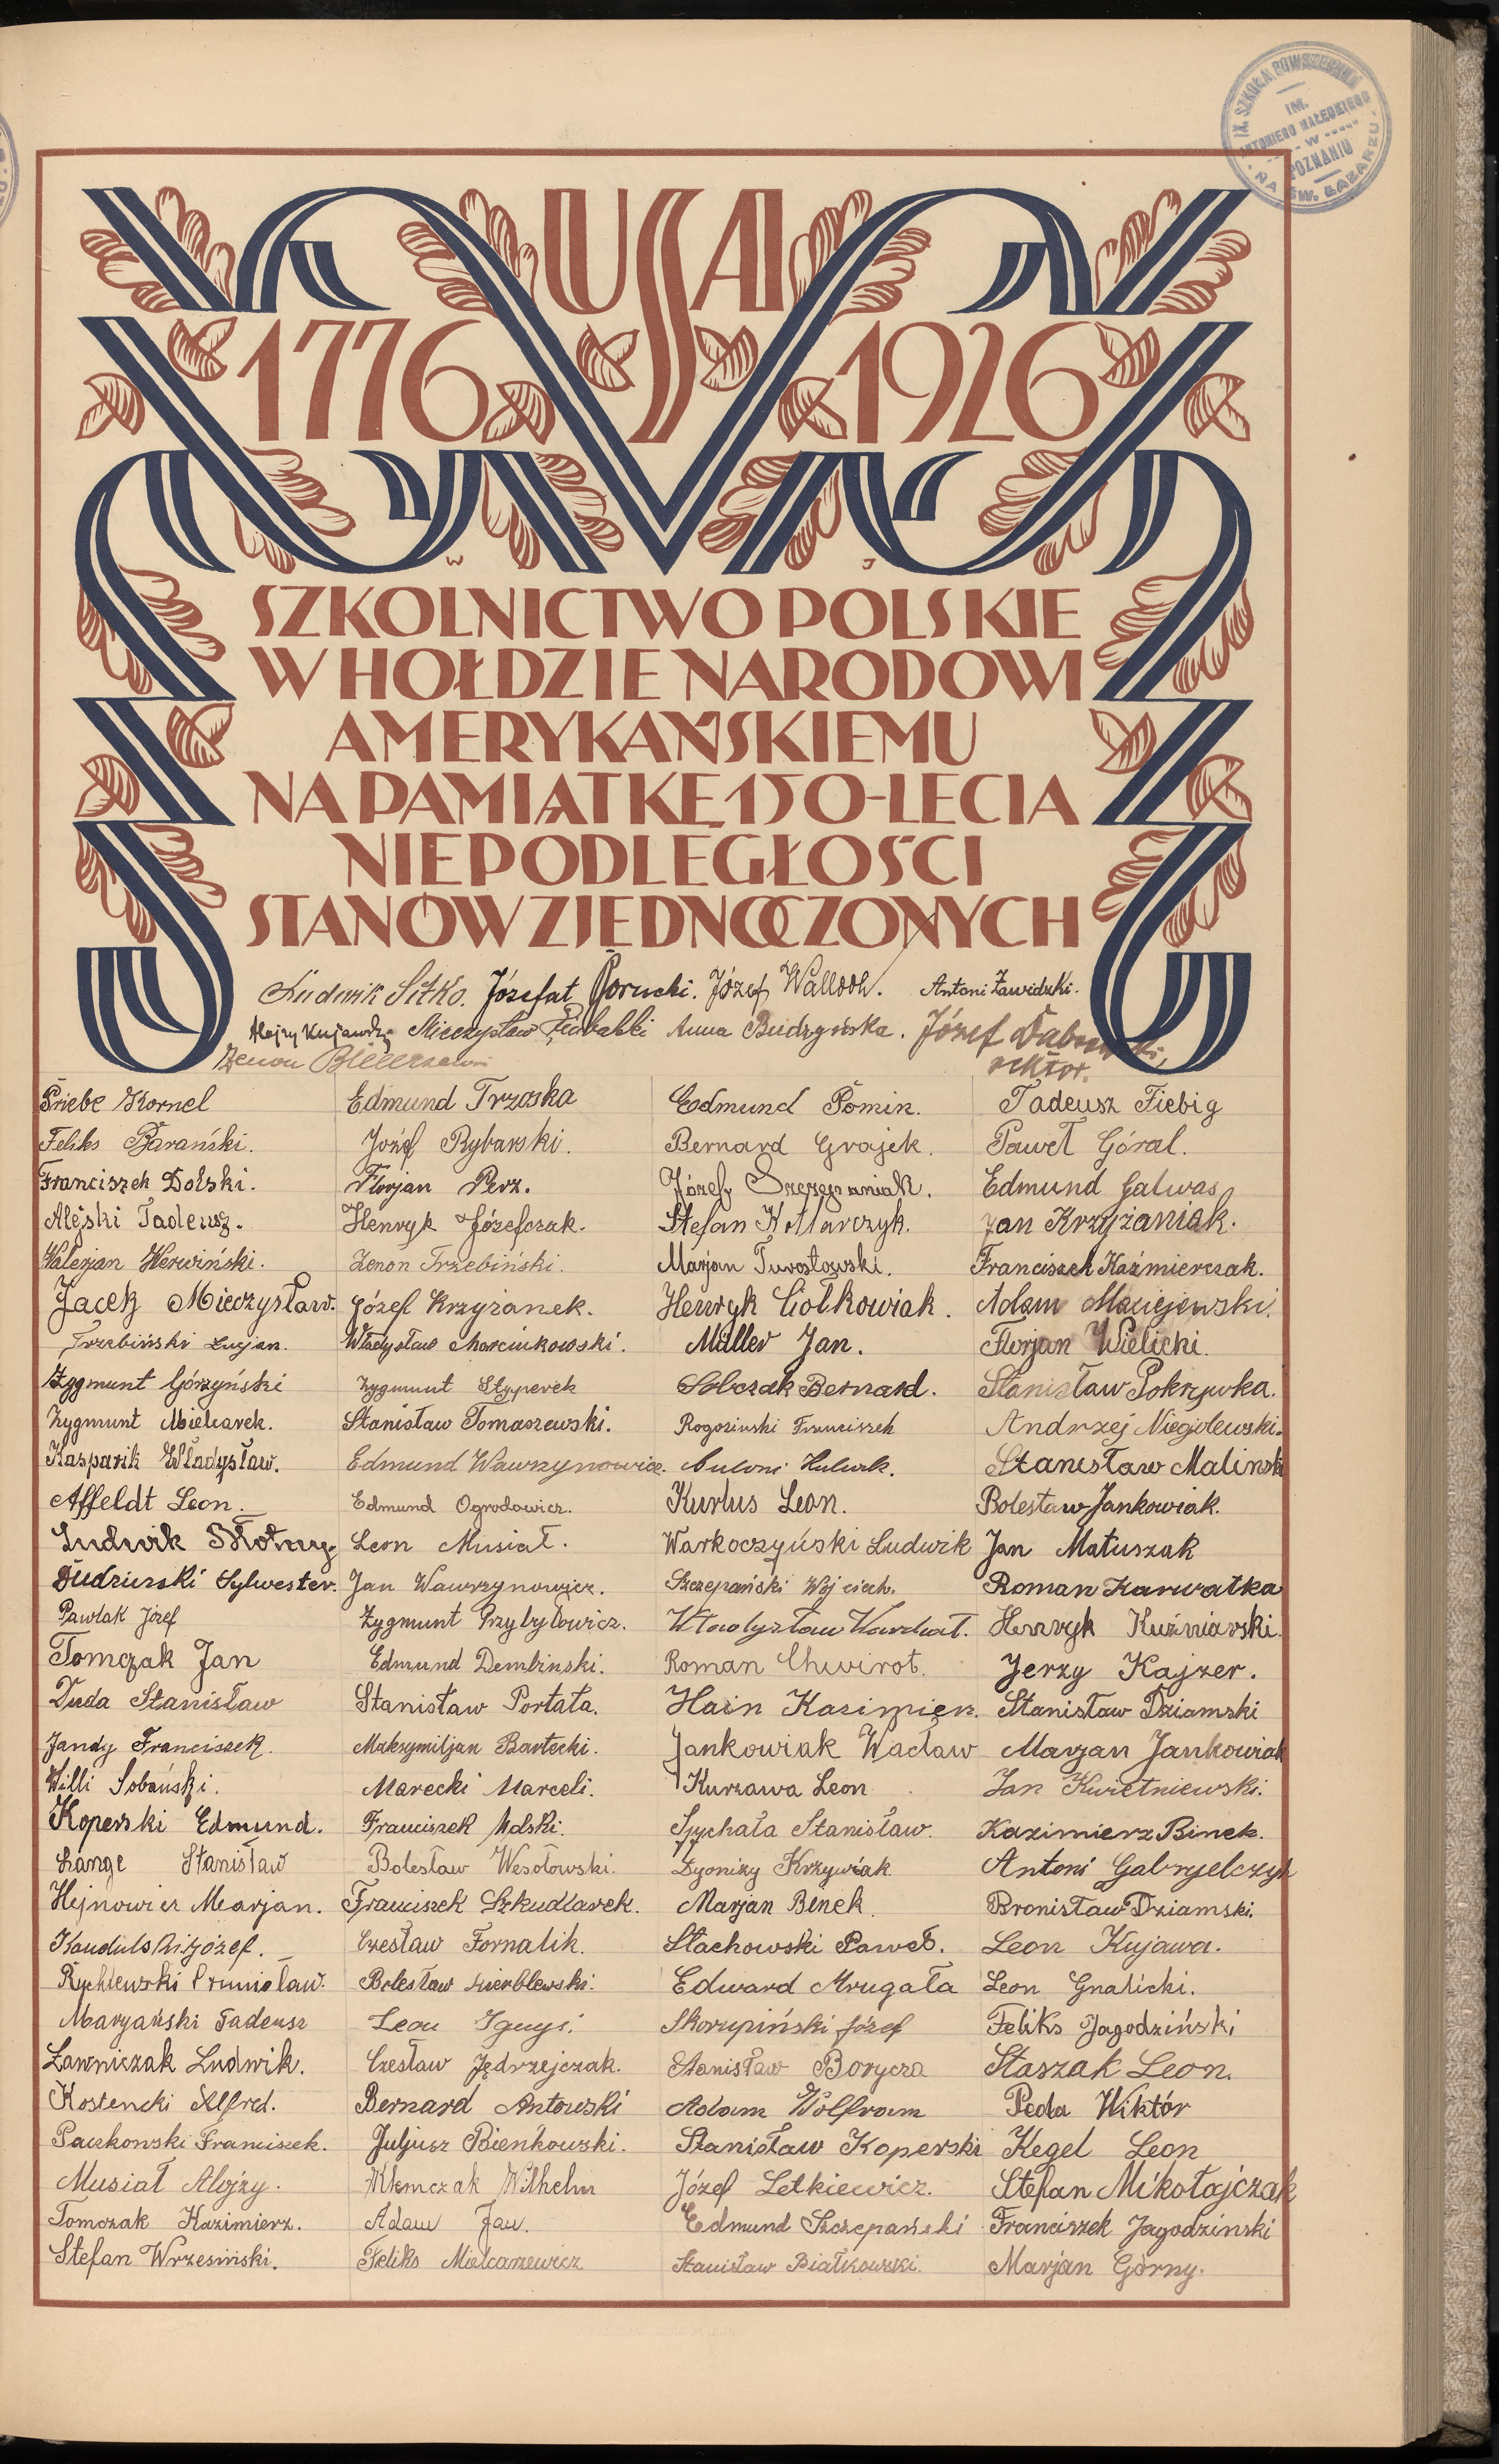 IX. SZKOŁA POWSZECHNA
IM.
ANTONIEGO MAŁECKIEGO
- W -
POZNANIU
NA ŚW. ŁAZARZU
USA
1776 1926
W J
SZKOLNICTWO POLSKIE
W HOŁDZIE NARODOWI
AMERYKAŃSKIEMU
NA PAMIĄTKĘ 150-LECIA
NIEPODLEGŁOŚCI
STANÓW ZJEDNOCZONYCH
Ludwik Sitko. Józefat Józef Antoni Zawidzki.
Mieczysław Anna Budzyńska. Józef
Zenon rektor.
Priebe Kornel Edmund Trzoska Edmund Pomin. Tadeusz Fiebig
Feliks Barański. Józef Rybarski. Bernard Grajek. Paweł Góral.
Franciszek Dolski. Florjan Perz. Józef Szczepaniak. Edmund Galwas
Alejski Tadeusz. Henryk Józefczak. Stefan Kotlarczyk. Jan Krzyżaniak.
Walerjan Herwiński. Zenon Trzebiński. Marjan Turostowski. Franciszek Kaźmierczak.
Jacek Mieczysław. Józef Krzyżanek. Henryk Ciołkowiak. Adam Maciejewski.
Trzebiński Lucjan. Władysław Marcinkowski. Müller Jan. Florjan Wielicki.
Zygmunt Górzyński Zygmunt Styperek Sobczak Bernard. Stanisław Pokrzywka.
Zygmunt Mielcarek. Stanisław Tomaszewski. Rogozinski Franciszek Andrzej Niegolewski.
Kasparik Władysław. Edmund Wawrzynowicz. Antoni Stanisław Malinski
Affeldt Leon. Edmund Ogrodowicz. Kurlus Leon. Bolesław Jankowiak.
Ludwik Leon Musiał. Warkoczyński Ludwik Jan Matuszak
Dudziński Sylwester. Jan Wawrzynowicz. Szczepański Wojciech. Roman Karwatka
Pawlak Józef Zygmunt Przybyłowicz. Władysław Henryk Kuźniarski.
Tomczak Jan Edmund Dembinski. Roman Chwirot. Jerzy Kajzer.
Duda Stanisław Stanisław Portata. Hain Kazimierz. Stanisław Dziamski
Jandy Franciszek. Maksymiljan Bartecki. Jankowiak Wacław Marjan Jankowiak
Willi Sobański. Marecki Marceli. Kurzawa Leon Jan Kwietniewski.
Koperski Edmund. Franciszek Molski. Spychała Stanisław. Kazimierz Binek.
Lange Stanisław Bolesław Wesołowski. Dyonizy Krzywiak Antoni Gabryelczyk
Hejnowicz Marjan. Franciszek Szkudlarek. Marjan Binek. Bronisław Dziamski.
Czesław Fornalik. Stachowski Paweł. Leon Kujawa.
Rychlewski Bolesław Edward Mrugała Leon Gnalicki.
Maryański Tadeusz Leon Ignyś. Skorupiński Józef Feliks Jagodziński
Ławniczak Ludwik. Czesław Jędrzejczak. Stanisław Borycza Staszak Leon.
Kostencki Alfred. Bernard Antowski Adam Wolfram Peda Wiktór
Paczkowski Franciszek. Juljusz Bieńkowski. Stanisław Koperski Kegel Leon
Musiał Alojzy. Klemczak Wilhelm Józef Letkiewicz. Stefan Mikołajczak
Tomczak Kazimierz. Adam Jan. Edmund Szczepański Franciszek Jagodzinski
Stefan Wrzesiński. Feliks Mielcarzewicz Stanisław Białkowski. Marjan Górny.